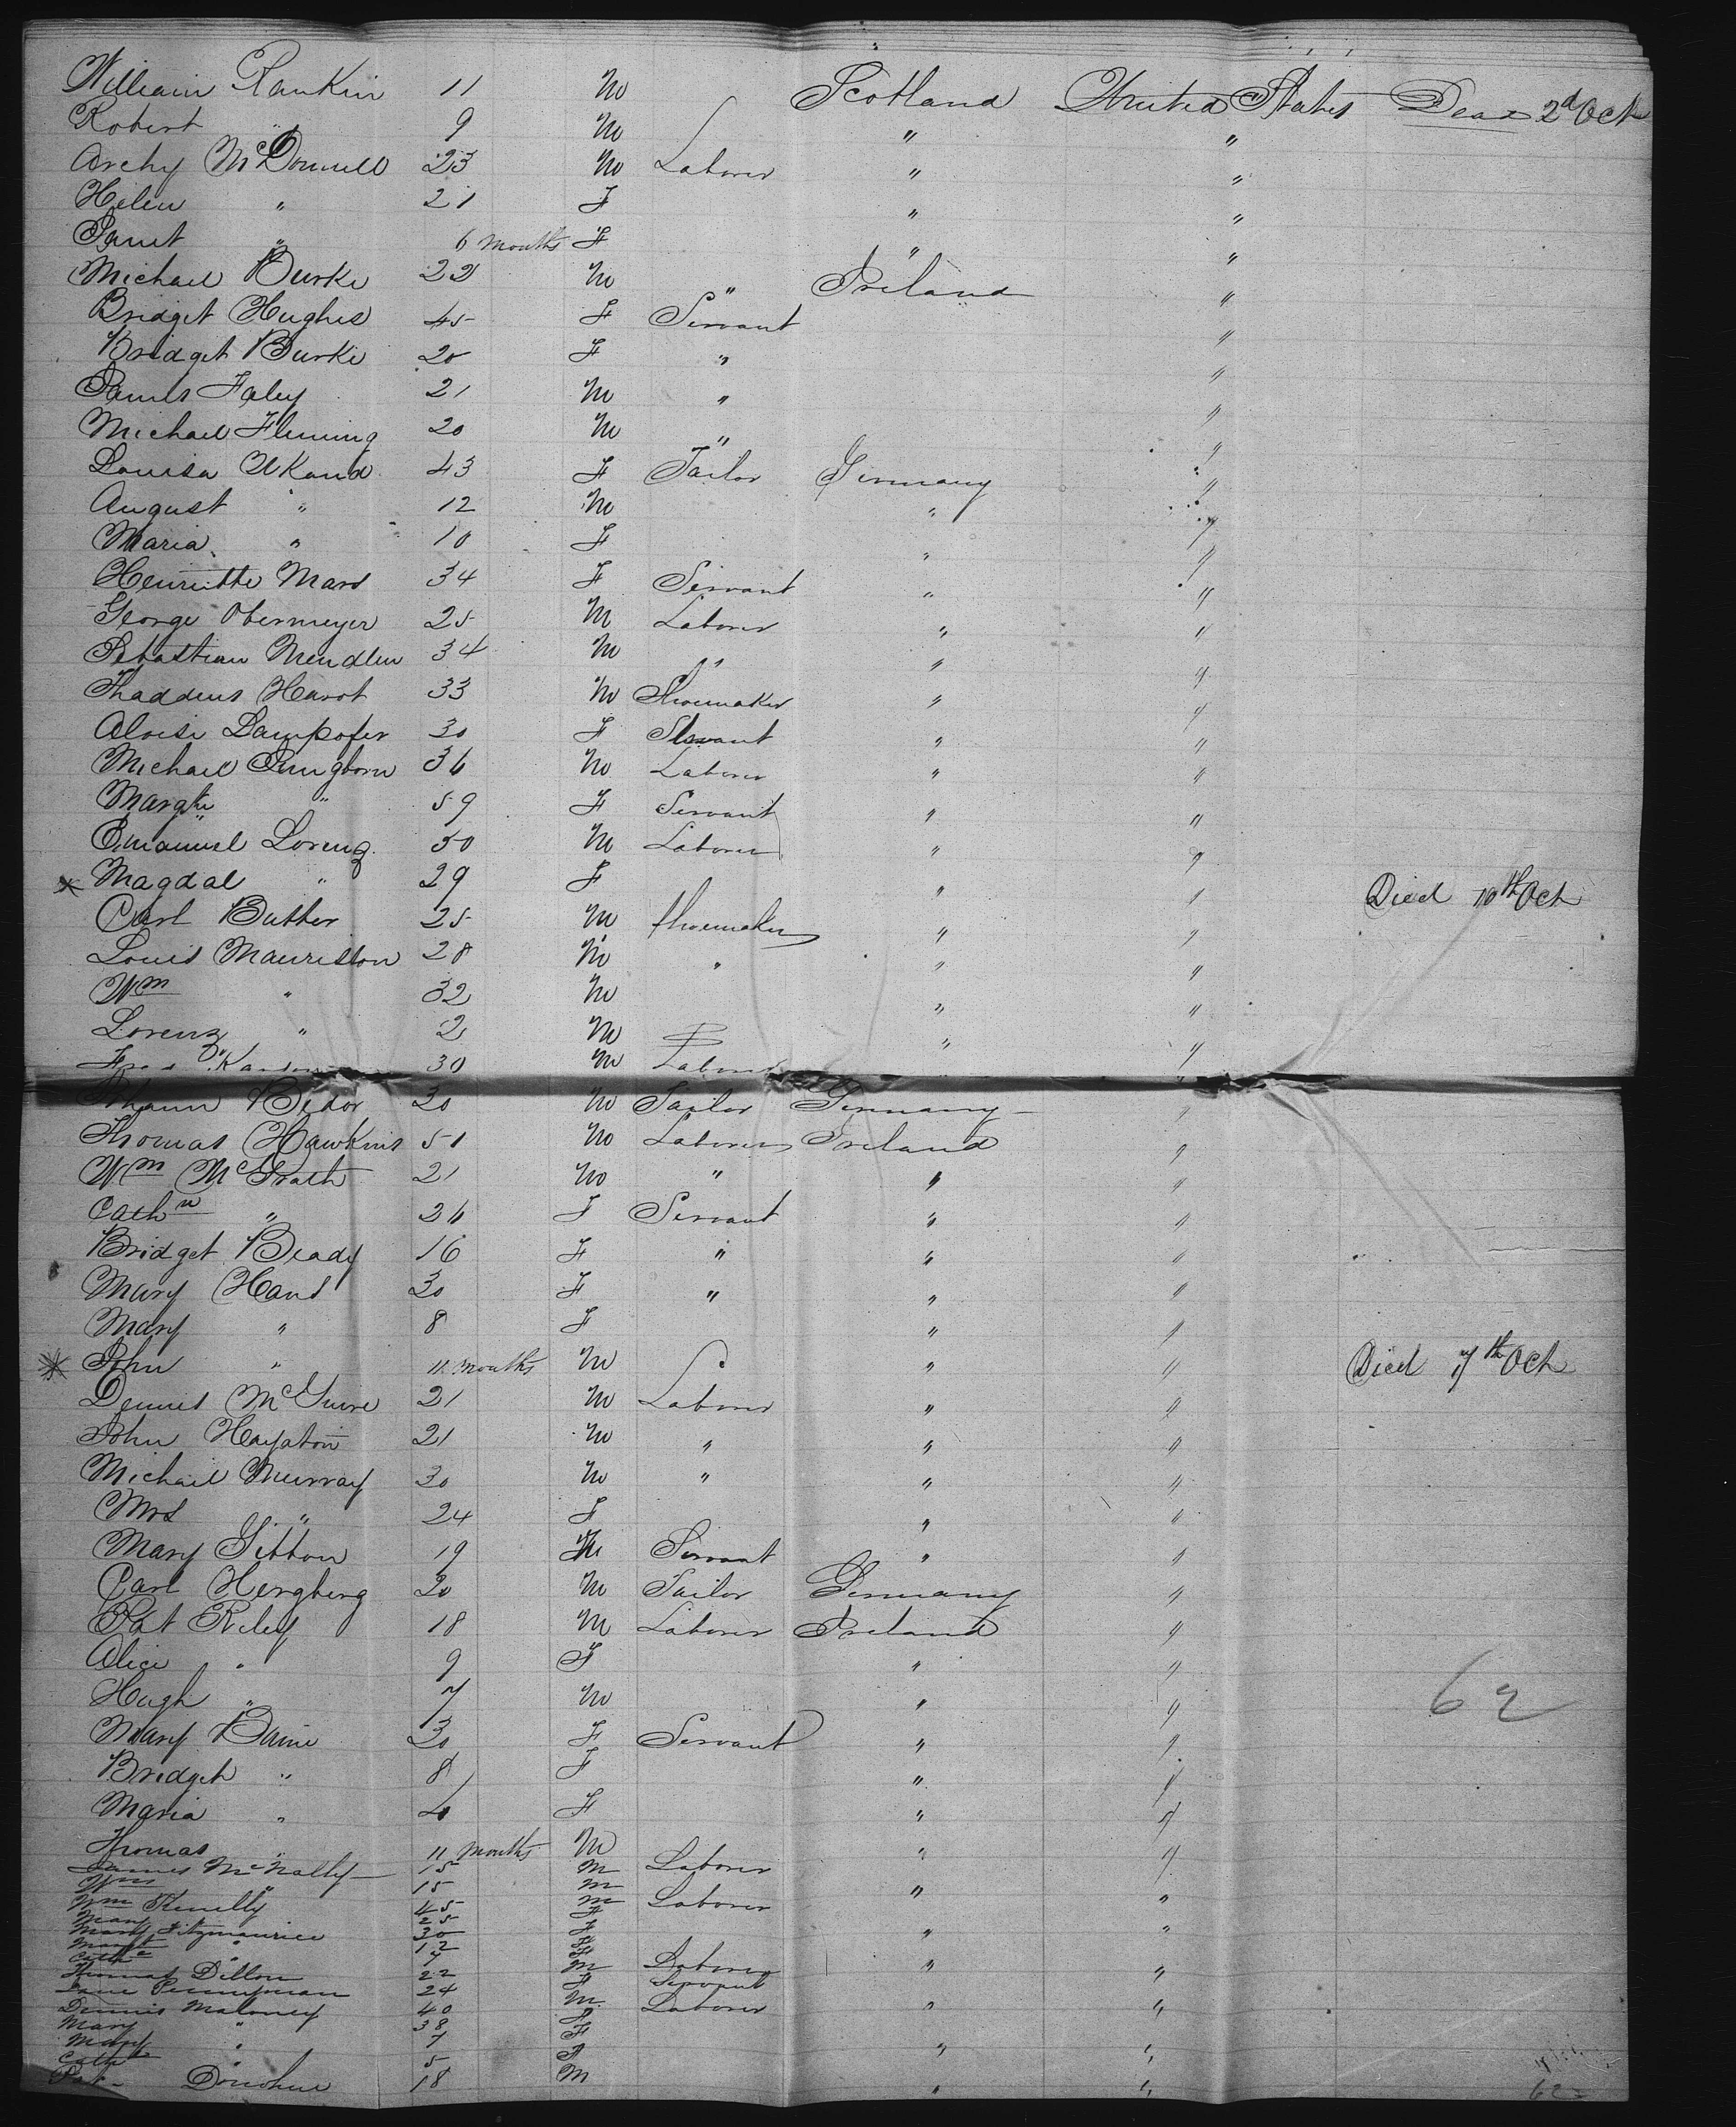 William Rankin 11 M Scotland United States Dead 2d Oct
Robert " 9 M " "
Archy McDonnell 23 M Laborer " "
Helen " 21 F " "
Janet " 6 months F " "
Michael Burke 22 M " Ireland "
Bridget Hughes 45 F Servant "
Bridget Burke 20 F " "
James Faley 21 M " "
Michael Fleming 20 M " "
Louisa Ukand 43 F Tailor Germany "
August " 12 M " "
Maria " 10 F " "
Henriette Mard 34 F Servant " "
George Obermeyer 25 M Laborer " "
Sebastian Mendlen 34 M " " "
Thaddeus Harot 33 M Shoemaker " "
Aloise Lampofer 30 F Servant " "
Michael Jungborn 36 M Laborer " "
Margte " 59 F Servant " "
Emanuel Lorenz 30 M Laborer " "
Magdal " 29 F " " Died 10th Oct
Carl Buther 25 M Shoemaker " "
Louis Mauriston 28 M " " "
Wm " 32 M " "
Lorenz " 2 M " "
30 M Laborer "
Johann Bedor 30 M Tailor Germany "
Thomas Hawkins 51 M Laborer Ireland "
Wm McGrath 21 M " " "
Cathn " 26 F Servant " "
Bridget Beady 16 F " " "
Mary Hand 30 F " " "
Mary " 8 F " "
John " 11 months M " " Died 7th Oct
Dennis McGuire 21 M Laborer " "
John Hayston 21 M " " "
Michael Murray 30 M " " "
Mrs " 24 F " "
Mary Gibbon 19 Servant " "
Carl Hergberg 20 M Tailor Germany "
Pat Riley 18 M Laborer Ireland "
Alice " 9 F " "
Hugh " 7 M " " 62
Mary Baine 30 F Servant " "
Bridget " 8 F " "
Maria " 4 F " "
Thomas " 11 months M " "
James McNally 15 M Laborer
Wm " 15 M " "
Wm Kenelly 45 M Laborer
Mary 25 F "
Mary Fitzmaurice 30 F "
Margt " 12 F
Cathe " 7 F
Thomas Dillon 22 M Laborer " "
Jane Pennyman 24 F Servant
Dennis Maloney 40 M Laborer " "
Mary " 38 F
Mary " 7 F " "
Cath " 5 F
Pat Donohue 18 M " "
62